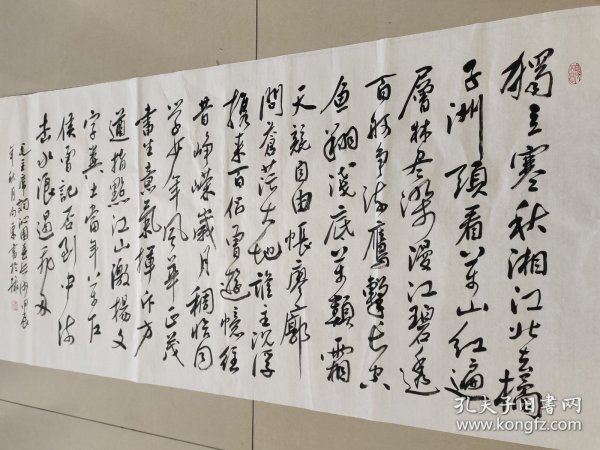 獨立寒秋湘江北去橘
子洲頭看萬山紅遍
層林尽染漫江碧透
百舸争流鷹擊长空
魚翔淺底萬類霜
天競自由悵廖廓
問蒼茫大地誰主沉浮
携来百侣曾遊憶往
昔峥嵘歲月稠恰同
学少年風華正茂
書生意氣揮斥方
遒指點江山激揚文
字糞土當年万户
侯曾記否到中流
击水浪遏飛舟
毛主席詞沁園春長沙甲辰
年秋月 書於
孔夫子旧书网
www.kongfz.com